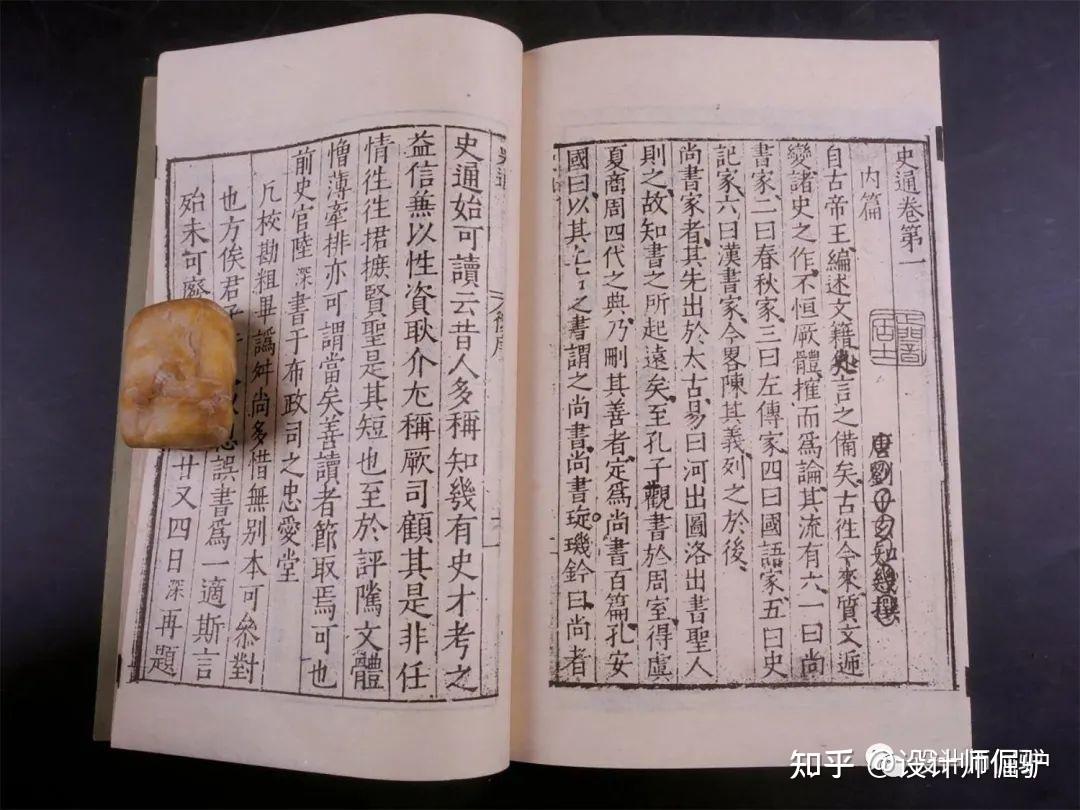 史通卷第一
内篇
唐劉子玄知幾撰
自古帝王編述文籍言之備矣古徃今來質文逓
變諸史之作不恒厥體搉而爲論其流有六一曰尚
書家二曰春秋家三曰左傳家四曰國語家五曰史
記家六曰漢書家今畧陳其義列之於後
尚書家者其先出於太古易曰河出圖洛出書聖人
則之故知書之所起遠矣至孔子觀書於周室得虞
夏商周四代之典乃刪其善者定爲尚書百篇孔安
國曰以其上古之書謂之尚書尚書琁璣鈐曰尚者
史通始可讀云昔人多稱知幾有史才考之
益信兼以性資耿介尤稱厥司顧其是非任
情徃徃捃摭賢聖是其短也至於評騭文體
憎薄牽排亦可謂當矣善讀者節取焉可也
前史官陸深書于布政司之忠愛堂
凡校勘粗畢譌舛尚多惜無别本可叅對
也方俟君子誤書爲一適斯言
殆未可廢廿又四日深再題
知乎 @设计师倔驴